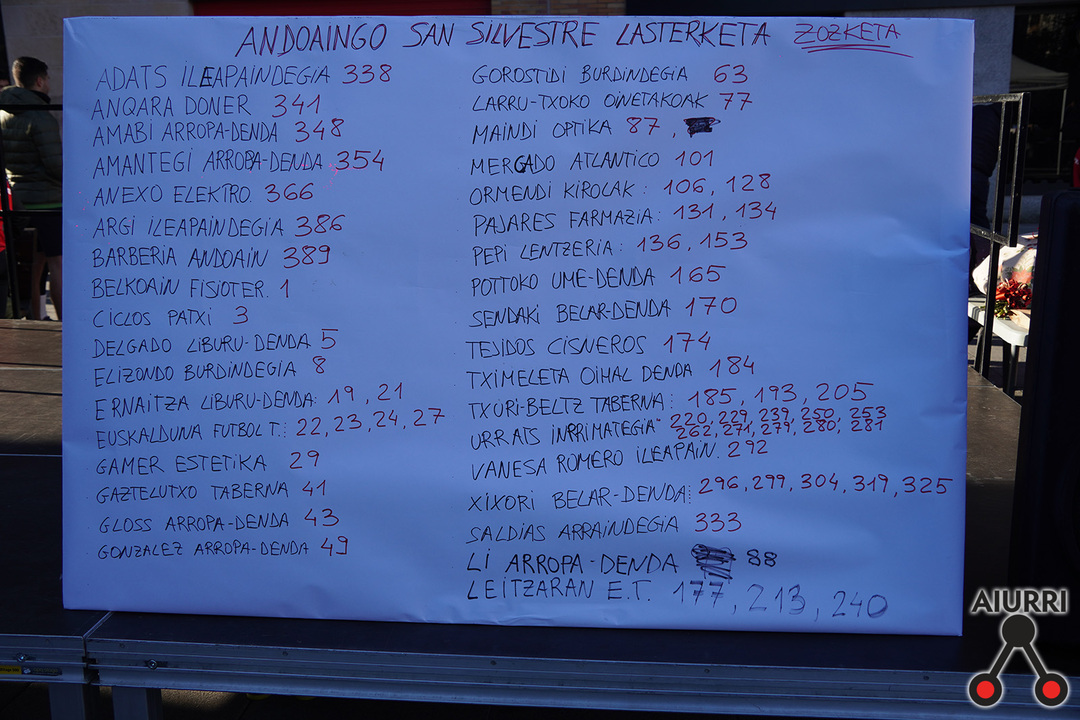 ANDOAINGO SAN SILVESTRE LASTERKETA ZOZKETA
ADATS ILEAPAINDEGIA 338
ANQARA DONER 341
AMABI ARROPA-DENDA 348
AMANTEGI ARROPA-DENDA 354
ANEXO ELEKTRO. 366
ARGI ILEAPAINDEGIA 386
BARBERIA ANDOAIN 389
BELKOAIN FISIOTER. 1
CICLOS PATXI 3
DELGADO LIBURU-DENDA 5
ELIZONDO BURDINDEGIA 8
ERNAITZA LIBURU-DENDA: 19, 21
EUSKALDUNA FUTBOL T.: 22, 23, 24, 27
GAMER ESTETIKA 29
GAZTELUTXO TABERNA 41
GLOSS ARROPA-DENDA 43
GONZALEZ ARROPA-DENDA 49
GOROSTIDI BURDINDEGIA 63
LARRU-TXOKO OINETAKOAK 77
MAINDI OPTIKA 87,
MERCADO ATLANTICO 101
ORMENDI KIROLAK: 106, 128
PAJARES FARMAZIA: 131, 134
PEPI LENTZERIA: 136, 153
POTTOKO UME-DENDA 165
SENDAKI BELAR-DENDA 170
TEJIDOS CISNEROS 174
TXIMELETA OIHAL DENDA 184
TXURI-BELTZ TABERNA: 185, 193, 205
URRATS INPRIMATEGIA: 220, 229, 239, 250, 253
262, 271, 279, 280, 281
VANESA ROMERO ILEAPAIN. 292
XIXORI BELAR-DENDA: 296, 299, 304, 319, 325
SALDIAS ARRAINDEGIA 333
LI ARROPA-DENDA 88
LEITZARAN E.T. 177, 213, 240
AIURRI